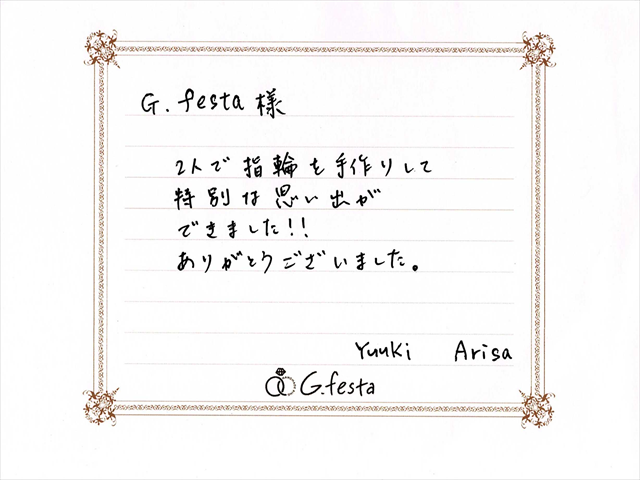 G.festa様
2人で指輪を手作りして
特別な思い出が
できました!!
ありがとうございました。
Yuuki Arisa
G.festa